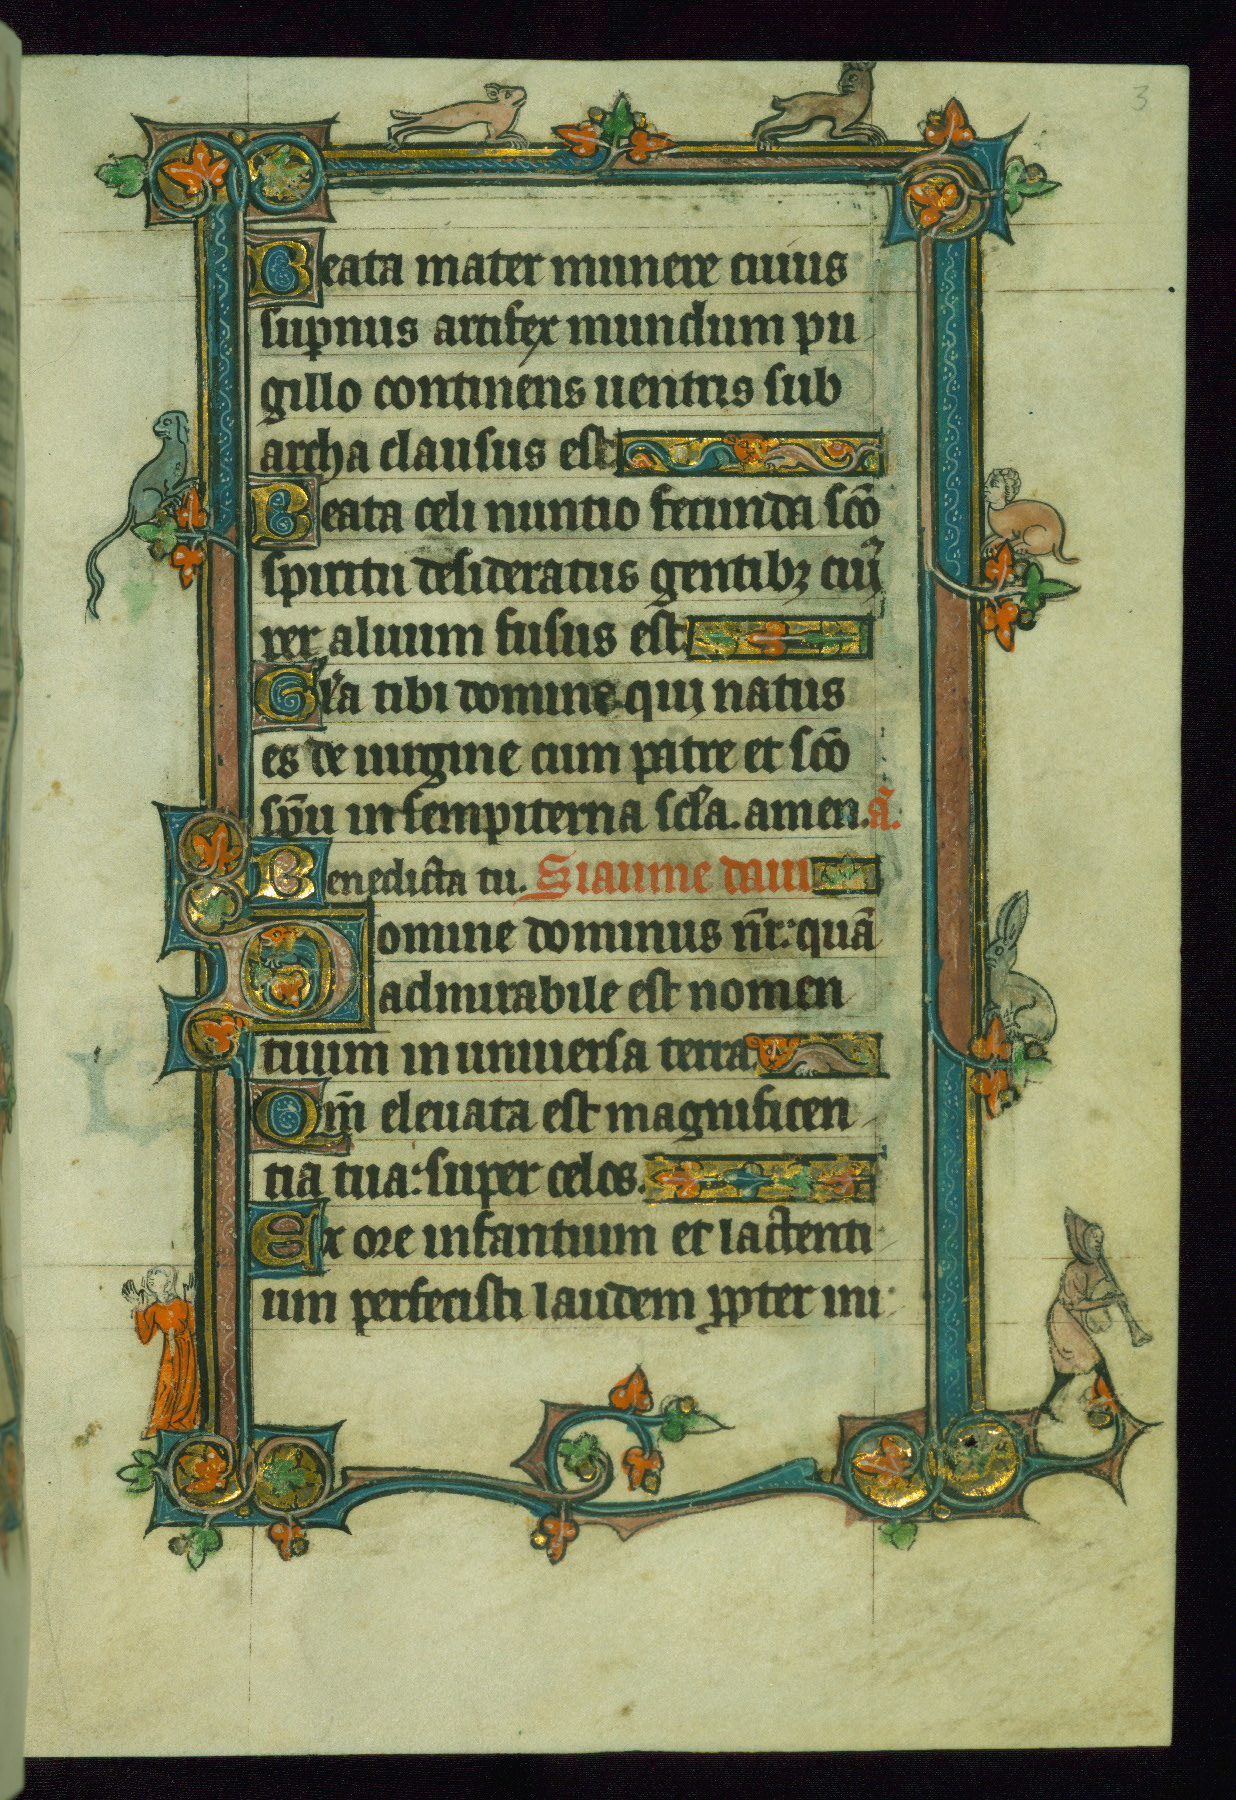 3
Beata mater munere cuius
sup̲nus artifex mundum pu
gillo continens uentris sub
archa clausus est.
Beata celi nuntio fecunda sc̄o
spiritu desideratus gentibꝫ cuı̄
per aluum fusus est.
Gl̄a tibi domine qui natus
es de uirgine cum patre et sc̄o
sp̄u in sempiterna sc̄la. amen. a͂.
Benedicta tu. Siaume daui
Domine dominus nr̄: quā
admirabile est nomen
tuum in uniuersa terra
Qm̄ eleuata est magnificen
tia tua: super celos.
Ex ore infantium et lactenti
um perfecisti laudem ꝓpter ini